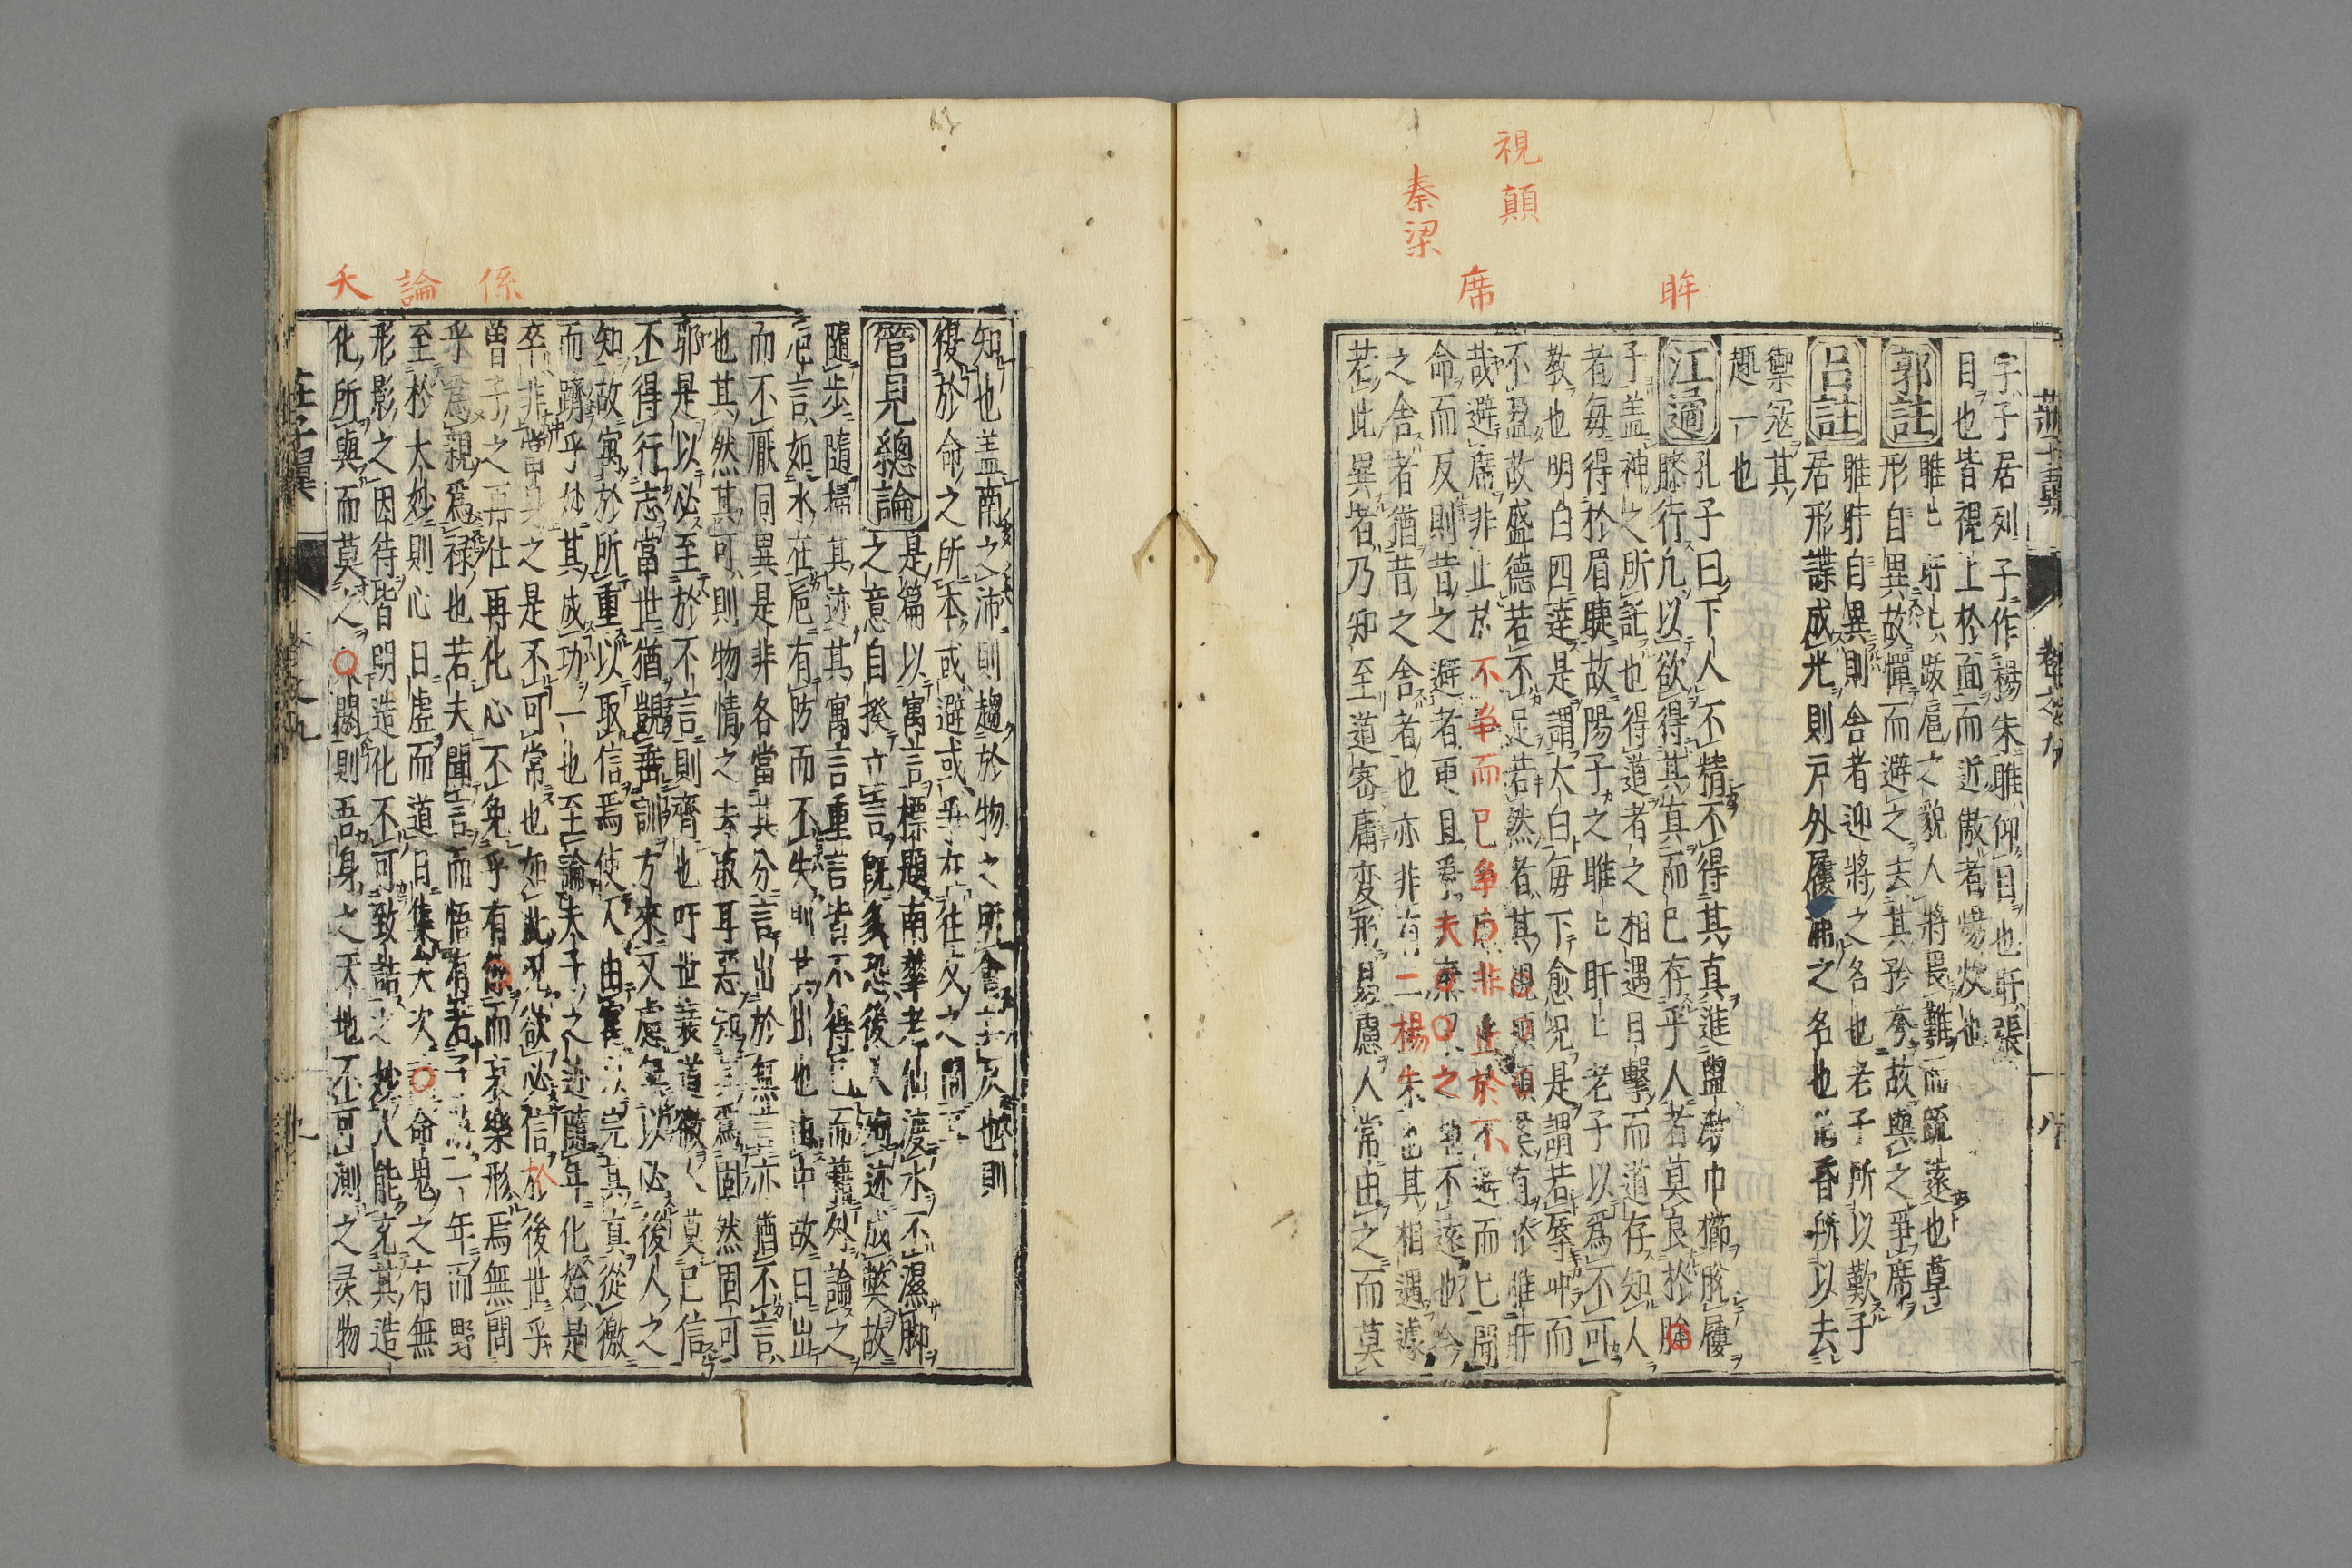 視顛
秦梁
席
眸
字子居列子作楊朱睢仰目也盱張
目也皆視上於面而近傲者煬炊也
郭註睢睢盱盱跋扈之貌人將畏難而疏遠也尊
形自異故憚而避之去其矜夸故與之爭席
呂註睢盱自異則舍者迎將之名也老子所以歎子
居形諜成光則戸外屨滿之名也
所以去
禦寇其
趣一也
江遹孔子曰下人不精不得其真進盥漱巾櫛脫屨
膝行凡以欲得其真而已存乎人者莫良於
子盖神之所託也得道者之相遇目擊而道存知人
者每得於眉睫故陽子之睢睢盱盱老子以爲不可
教也明白四達是謂大白每下愈況是謂若辱冲而
不盈故盛德若不足若然者其
哉避席非止於不争而已争席非止於不避而已聞
命而反則昔之避者更且争夫秦梁之地不遠也今
之舍者猶昔之舍者也亦非有二楊朱也其相遇遽
若此異者乃知至道審庸変形易慮人常由之而莫
係
論
夭
知也盖南之沛則趨於物之所會
也則
復於命之所本或避或爭亦在往反之間
管見總論是篇以寓言標題南華老仙渡水不濕脚
之意自揆立言既多恐後人泥迹成弊故
隨歩隨掃其迹其寓言重言皆不得已而藉外論之
巵言如水在巵有防而不失
也由中故日出
而不厭同異是非各當其分言出於無言亦猶不言
也其然其可則物情之去取耳惡知其爲固然固可
耶是以必至於不言則齊也吁世衰道微人莫已信
不得行志當世猶覬垂訓方來又慮無以必後人之
知故寓於所重以取信焉使人由寓以完其真從微
而躋乎妙其成功一也至論夫子之迹隨年化始是
卒非當身之是不可常也如此況欲必信於後世乎
曾子之再仕再化心不免乎有係而哀樂形焉無問
乎爲親爲禄也若夫聞言而悟有若子
一年而野
至於大妙則心日虚而道日集矣次論命鬼之有無
形影之因待皆明造化不可致詰之妙人能充其造
化所與而莫人之夭閼則吾身之天地不可測之灵物